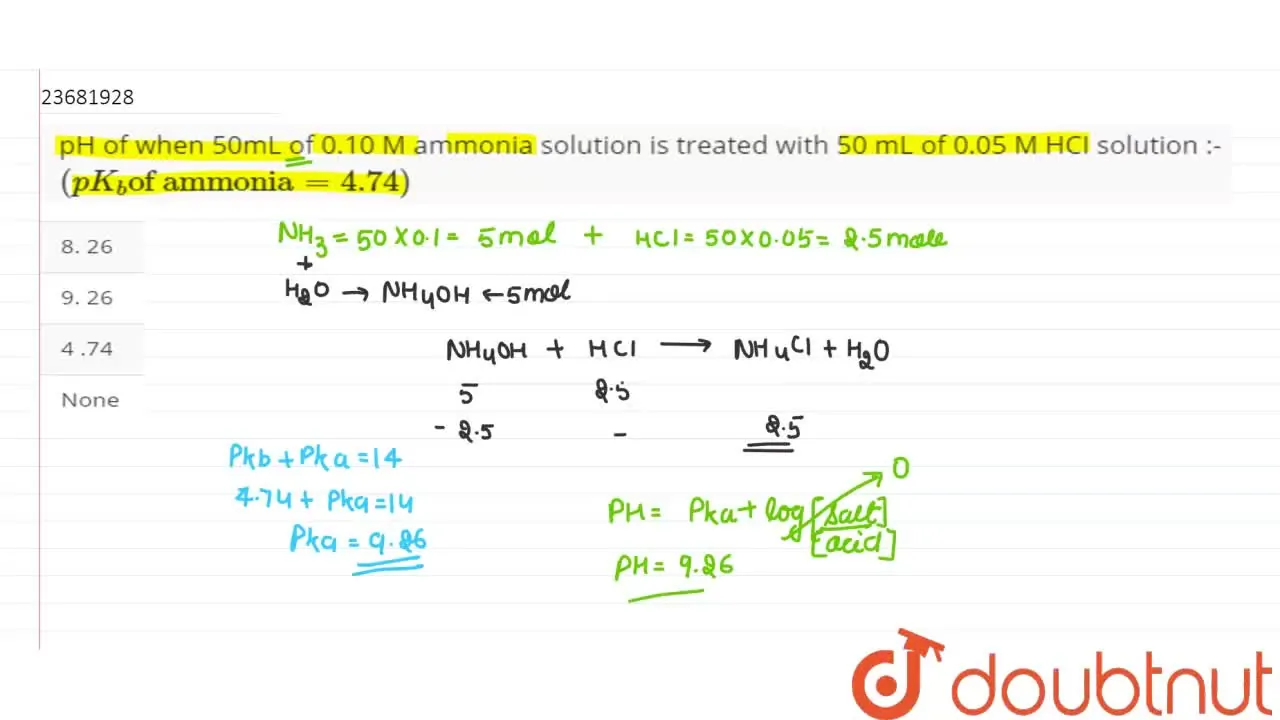 23681928
pH of when 50mL of 0.10 M ammonia solution is treated with 50 mL of 0.05 M HCl solution :-
(pK_b of ammonia = 4.74)
8. 26
9. 26
4 .74
None
NH3 = 50 X 0.1 = 5 mol + HCl = 50 X 0.05 = 2.5 mole
+
H2O → NH4OH ← 5 mol
NH4OH + HCl → NH4Cl + H2O
5 2.5
- 2.5 - 2.5
Pkb + Pka = 14
4.74 + Pka = 14
Pka = 9.26
PH = Pka + log [salt]/[acid] 0
PH = 9.26
doubtnut